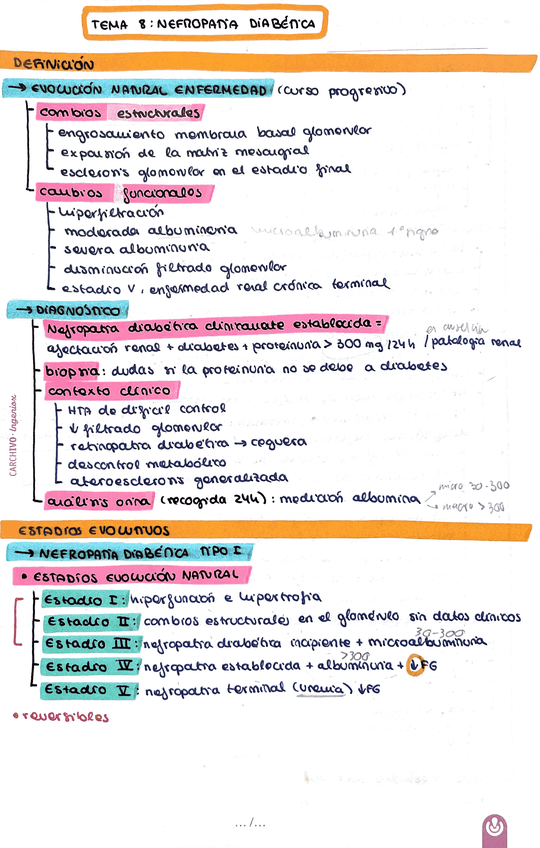 TEMA 8: NEFROPATÍA DIABÉTICA
DEFINICIÓN
→ EVOLUCIÓN NATURAL ENFERMEDAD (curso progresivo)
cambios estructurales
engrosamiento membrana basal glomerular
expansión de la matriz mesangial
esclerosis glomerular en el estadio final
cambios funcionales
hiperfiltración
moderada albuminuria microalbuminuria 1º signo
severa albuminuria
disminución filtrado glomerular
estadio V, enfermedad renal crónica terminal
→ DIAGNÓSTICO
Nefropatía diabética clínicamente establecida =
afectación renal + diabetes + proteinuria > 300 mg /24h / en ausencia patología renal
biopsia: dudas si la proteinuria no se debe a diabetes
contexto clínico
HTA de difícil control
↓ filtrado glomerular
retinopatía diabética → ceguera
descontrol metabólico
ateroesclerosis generalizada
análisis orina (recogida 24h): medición albumina micro 30-300
macro > 300
CARCHIVO-ingenias
ESTADIOS EVOLUTIVOS
→ NEFROPATÍA DIABÉTICA TIPO I
• ESTADIOS EVOLUCIÓN NATURAL
Estadio I: hiperfunción e hipertrofia
Estadio II: cambios estructurales en el glomérulo sin datos clínicos
30-300
Estadio III: nefropatía diabética incipiente + microalbuminuria
>300
Estadio IV: nefropatía establecida + albuminuria + ↓ FG
Estadio V: nefropatía terminal (uremia) ↓FG
• reversibles
... /...